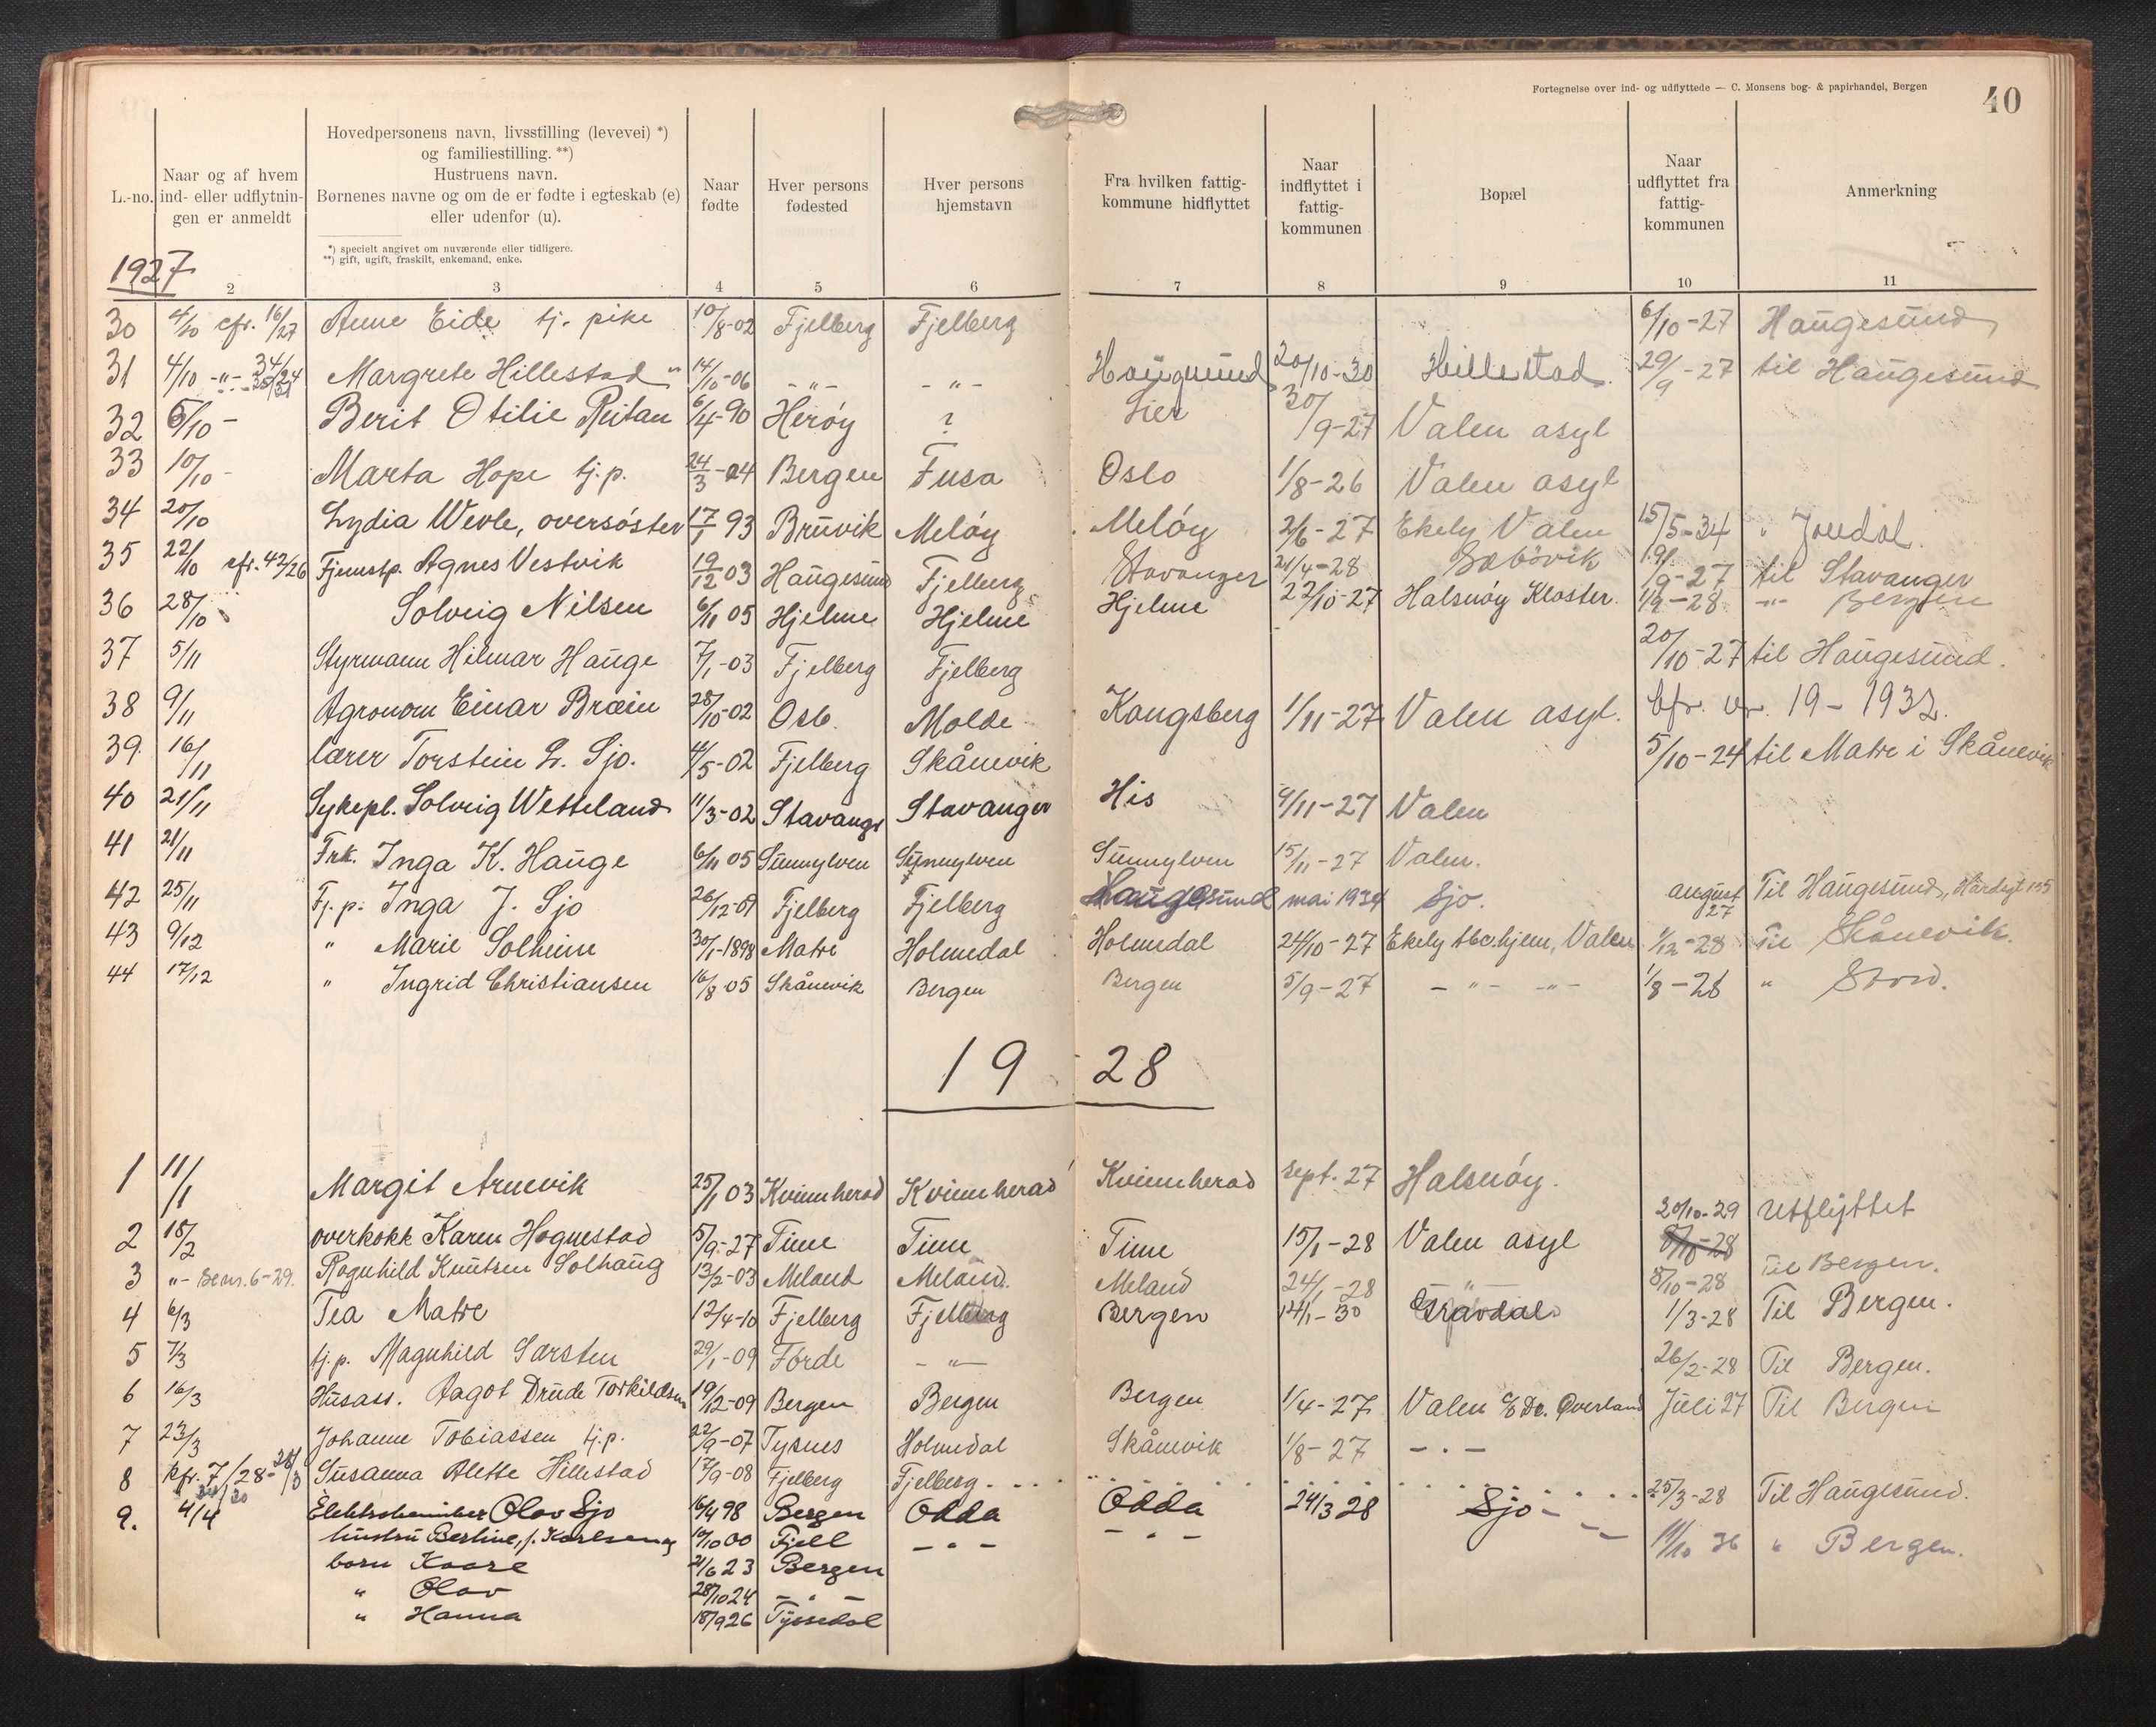 Fortegnelse over ind- og udflyttede — C. Monsens bog- & papirhandel, Bergen
40
L.-no. | Naar og af hvem ind- eller udflytnin-gen er anmeldt | Hovedpersonens navn, livsstilling (levevei) *) og familiestilling. **) Hustruens navn. Børnenes navne og om de er fødte i egteskab (e) eller udenfor (u). | Naar fødte | Hver persons fødested | Hver persons hjemstavn | Fra hvilken fattig-kommune hidflyttet | Naar indflyttet i fattig-kommunen | Bopæl | Naar udflyttet fra fattig-kommunen | Anmerkning
*) specielt angivet om nuværende eller tidligere.
**) gift, ugift, fraskilt, enkemand, enke.
1927
2 3 4 5 6 7 8 9 10 11
30 4/10 cfr. 16/27 Anne Eide tj. pike 10/8-02 Fjelberg Fjelberg 6/10-27 Haugesund
31 4/10 -"- 34/24 Margrete Hillestad " 14/10-06 -"- -"- Haugesund 20/10-30 Hillestad. 29/9-27 til Haugesund
32 5/10 - Berit Otilie Reitan 6/4-90 Herøy ? Lier 30/9-27 Valen asyl
33 10/10 - Marta Hope tj.p. 24/3-04 Bergen Fusa Oslo 1/8-26 Valen asyl
34 20/10 Lydia Wevle, oversøster 17/1 93 Bruvik Meløy Meløy 2/6-27 Ekely Valen 15/5-34 " Jondal.
35 22/10 cfr. 42/26 Tjenestp. Agnes Vestvik 19/12 03 Haugesund Fjelberg Stavanger 21/4-28 Sæbøvik 19/9-27 til Stavanger
36 28/10 Solveig Nilsen 6/11 05 Hjelme Hjelme Hjelme 22/10-27 Halsnøy Kloster. 1/9-28 -"- Bergen
37 5/11 Styrmann Hilmar Hauge 7/1-03 Fjelberg Fjelberg 20/10-27 til Haugesund.
38 9/11 Agronom Einar Bræin 28/10-02 Oslo. Molde Kongsberg 1/11-27 Valen asyl. Cfr. nr. 19-1932.
39 16/11 lærer Torstein L. Sjo. 4/5-02 Fjelberg Skånevik 5/10-24 til Matre i Skånevik
40 21/11 Sykepl. Solveig Wetteland 11/3-02 Stavanger Stavanger His 9/11-27 Valen
41 21/11 Frk. Inga K. Hauge 6/11 05 Sunnylven Sunnylven Sunnylven 15/11-27 Valen.
42 25/11 Tj.p. Inga J. Sjo 26/12-07 Fjelberg Fjelberg Haugesund mai 1934 Sjo. august 27 Til Haugesund, Hårdgt 155
43 9/12 " Marie Solheim 30/1-1898 Matre Holmedal Holmedal 24/10-27 Ekely tbc.hjem, Valen 1/12-28 Til Skånevik.
44 17/12 " Ingrid Christiansen 16/8-05 Skånevik Bergen Bergen 5/9-27 -"- -"- 1/8-28 " Stord.
1928
1 11/1 Margit Arnevik 25/1 03 Kvinnherad Kvinnherad Kvinnherad sept. 27 Halsnøy.
2 18/2 overkokk Karen Hognestad 5/9-27 Time Time Time 15/1-28 Valen asyl 20/10-29 Utflyttet
3 "- 6-29. Ragnhild Knutsen Solhaug 13/2-03 Meland Meland. Meland 24/1-28 -"- 8/10-28 Til Bergen.
4 6/3 Tea Matre 12/4-10 Fjelberg Fjelberg Bergen 14/1-30 Gravdal. 1/3-28 Til Bergen.
5 7/3 tj.p. Magnhild Sarsten 29/1-09 Førde -"- 26/2-28 Til Bergen.
6 16/3 Husass. Aagot Drude Torkildsen 19/12-09 Bergen Bergen Bergen 1/4-27 Valen c/o Dr. Øverland Juli 27 Til Bergen
7 23/3 Johanne Tobiassen tj.p. 22/9-07 Tysnes Holmedal Skånevik 1/8-27 -"-
8 kfr. 7/28- 28/3 Susanna Alette Hillestad 17/9-08 Fjelberg Fjelberg 25/3-28 Til Haugesund.
9. 4/4 Elektrokemiker Olav Sjo 6/4 98 Bergen Odda Odda 24/3 28 Sjo 11/10 36 " Bergen.
hustru Berline, f. Karlsen og 10/10 00 Fjell -"- -"-
born Kaare 21/6 23 Bergen
" Olav 28/10 24 -"-
" Hanna 18/9 26 Tyssedal